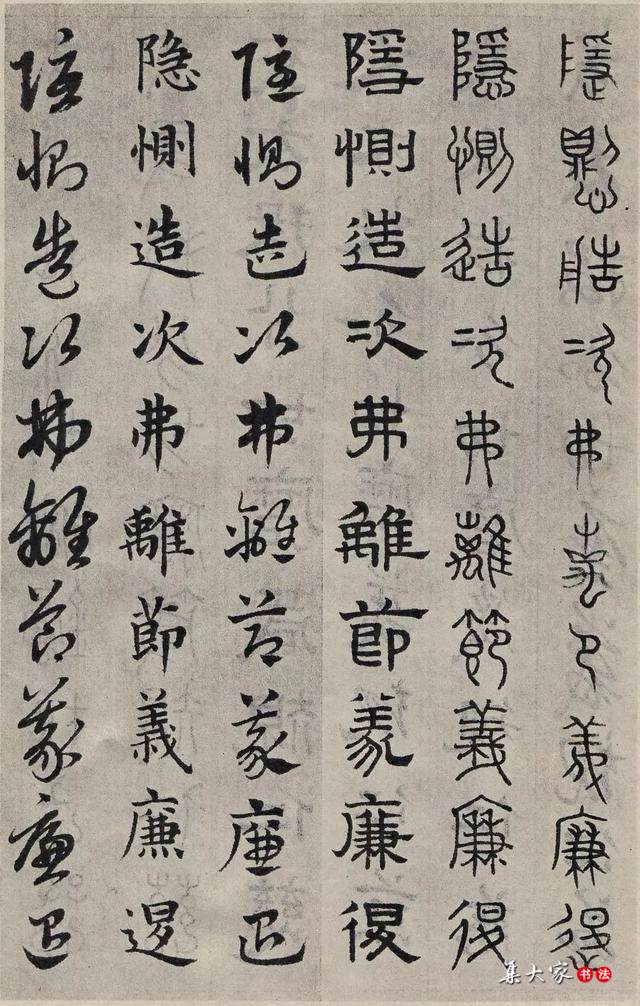 隱惻造次弗離節義廉退
隱惻造次弗離節義廉退
隱惻造次弗離節義廉退
隱惻造次弗離節義廉退
隐惻造次弗離節義廉退
隱惻造次弗離節義廉退
集大家书法